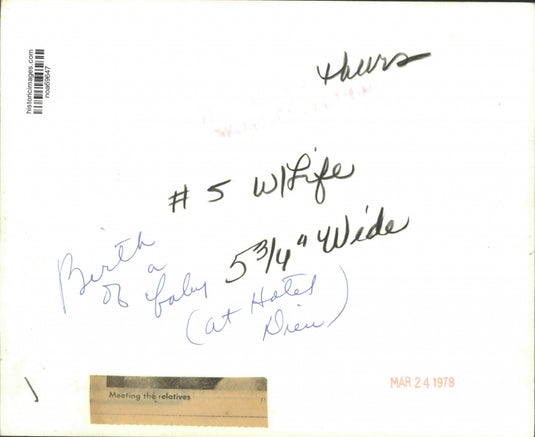 historicimages.com
noa69647
thurs
# 5 W/Life
5 3/4" Wide
Birth
of a baby
(at Hotel
Dieu)
MAR 24 1978
Meeting the relatives